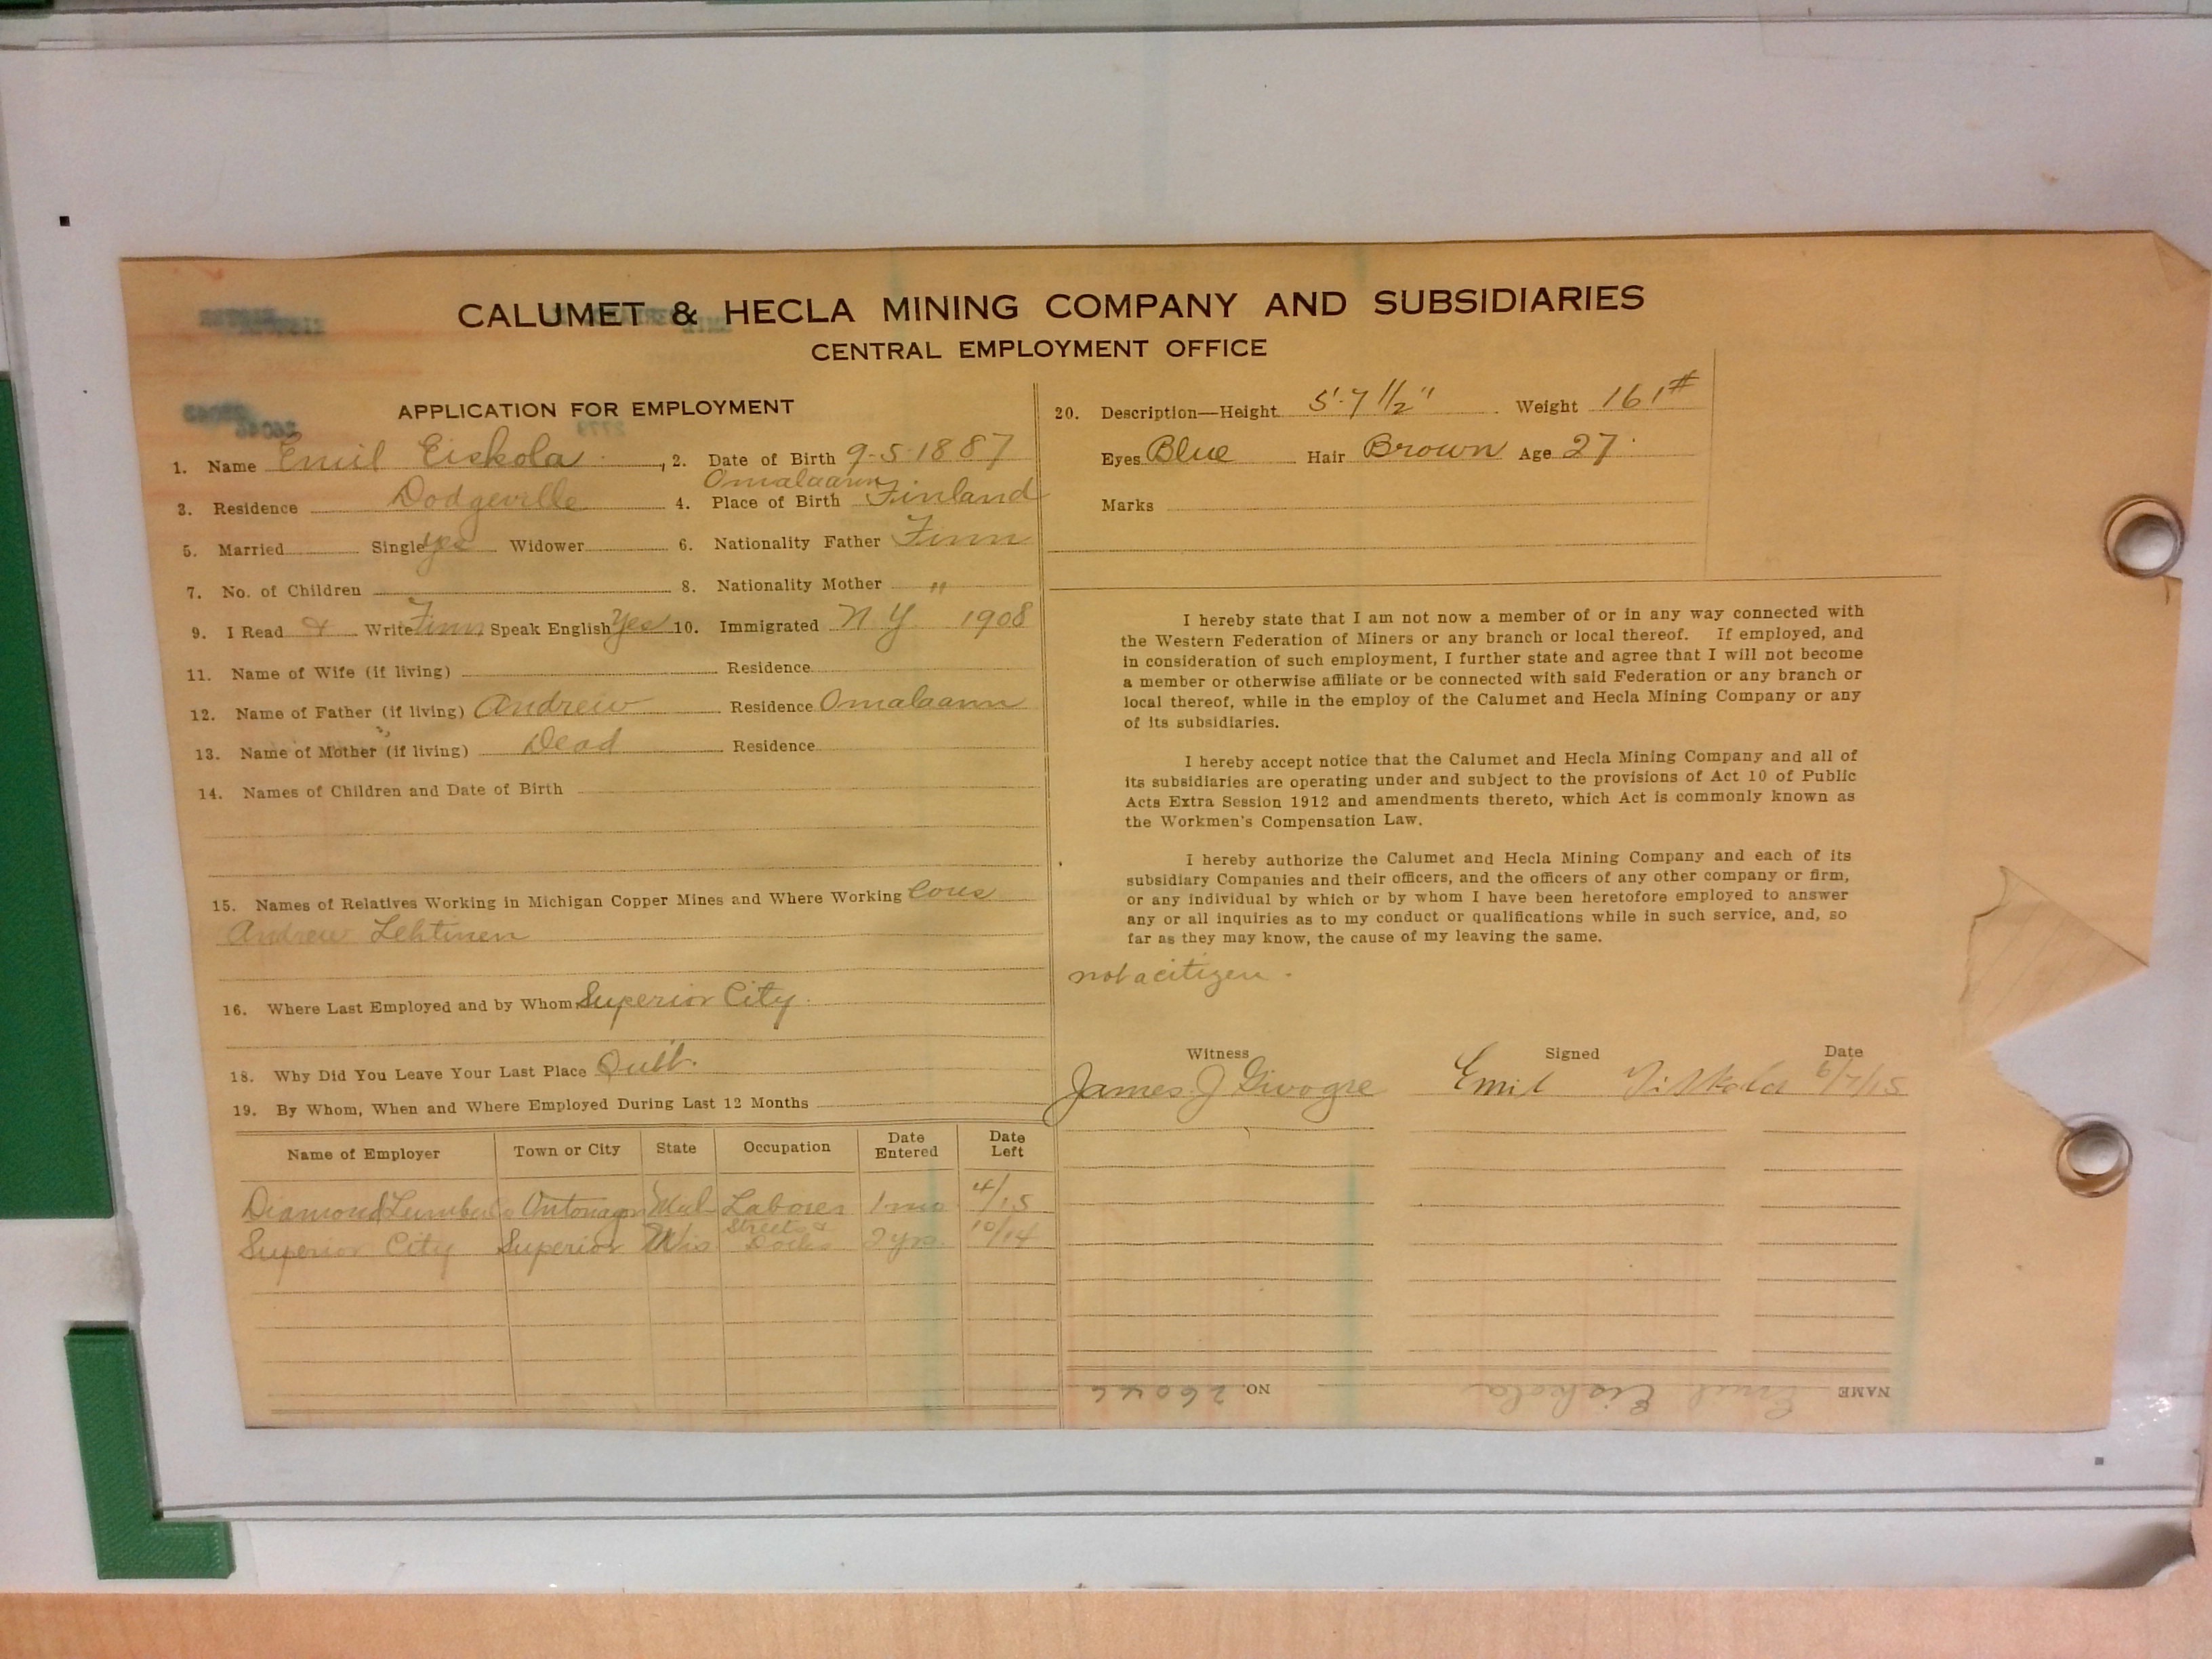 CALUMET & HECLA MINING COMPANY AND SUBSIDIARIES
CENTRAL EMPLOYMENT OFFICE
APPLICATION FOR EMPLOYMENT
1. Name Emil Eiskola, 2. Date of Birth 9-5-1887
Omalaann
3. Residence Dodgeville 4. Place of Birth Finland
5. Married Single yes Widower 6. Nationality Father Finn
7. No. of Children 8. Nationality Mother "
9. I Read & Write Finn Speak English Yes 10. Immigrated N Y 1908
11. Name of Wife (if living) Residence
12. Name of Father (if living) Andrew Residence Omalaann
13. Name of Mother (if living) Dead Residence
14. Names of Children and Date of Birth
15. Names of Relatives Working in Michigan Copper Mines and Where Working Cous
Andrew Lehtinen
16. Where Last Employed and by Whom Superior City.
18. Why Did You Leave Your Last Place Quit.
19. By Whom, When and Where Employed During Last 12 Months
Name of Employer Town or City State Occupation Date Entered Date Left
Diamond Lumber Co Ontonagon Mich Laborer 1 mo 4/15
Superior City Superior Wis Streets & Docks 2 yrs 10/14
20. Description—Height 5'-7 1/2" Weight 161#
Eyes Blue Hair Brown Age 27
Marks
I hereby state that I am not now a member of or in any way connected with
the Western Federation of Miners or any branch or local thereof. If employed, and
in consideration of such employment, I further state and agree that I will not become
a member or otherwise affiliate or be connected with said Federation or any branch or
local thereof, while in the employ of the Calumet and Hecla Mining Company or any
of its subsidiaries.
I hereby accept notice that the Calumet and Hecla Mining Company and all of
its subsidiaries are operating under and subject to the provisions of Act 10 of Public
Acts Extra Session 1912 and amendments thereto, which Act is commonly known as
the Workmen's Compensation Law.
I hereby authorize the Calumet and Hecla Mining Company and each of its
subsidiary Companies and their officers, and the officers of any other company or firm,
or any individual by which or by whom I have been heretofore employed to answer
any or all inquiries as to my conduct or qualifications while in such service, and, so
far as they may know, the cause of my leaving the same.
not a citizen.
Witness Signed Date
James J Givogre Emil 6/7/15
NAME Emil Eiskola NO. 26046